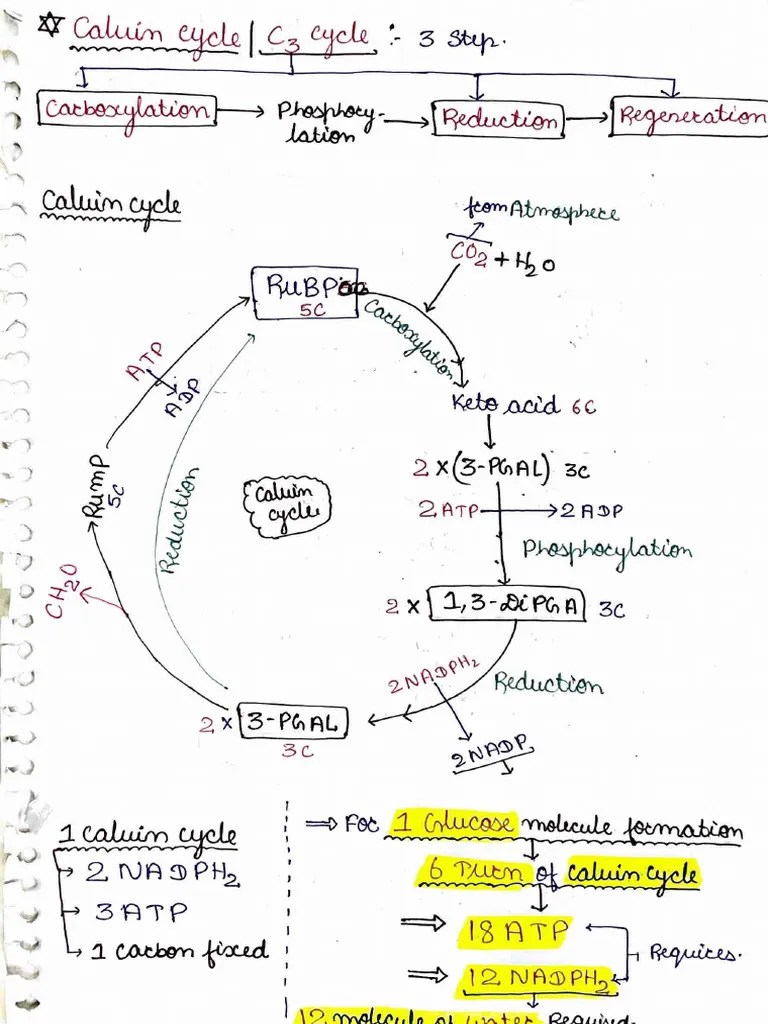 Calvin cycle | C3 cycle :- 3 Step.
Carboxylation → Phosphory-lation → Reduction → Regeneration
Calvin cycle
from Atmosphere
CO2 + H2O
RuBP
5C
Carboxylation
Keto acid 6C
2 x (3-PGAL) 3C
2 ATP → 2 ADP
Phosphorylation
2 x 1,3-DiPGA 3C
2NADPH2
Reduction
2NADP
2 x 3-PGAL
3C
CH2O
RumP
5C
ATP
ADP
Reduction
Calvin
cycle
1 Calvin cycle
→ 2 NADPH2
→ 3 ATP
→ 1 Carbon fixed
⇒ For 1 Glucose molecule formation
6 Turn of Calvin cycle
⇒ 18 ATP
Requires.
⇒ 12 NADPH2
12 molecule of water Required.